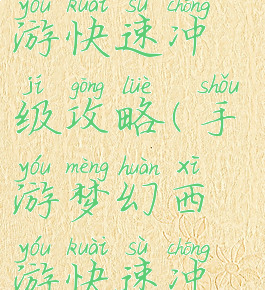 yóu kuài sù chōng
游快速冲
jí gōng lüè shǒu
级攻略(手
yóu mèng huàn xī
游梦幻西
yóu kuài sù chōng
游快速冲